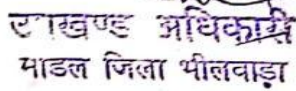 उपखण्ड अधिकारी
माडल जिला भीलवाड़ा